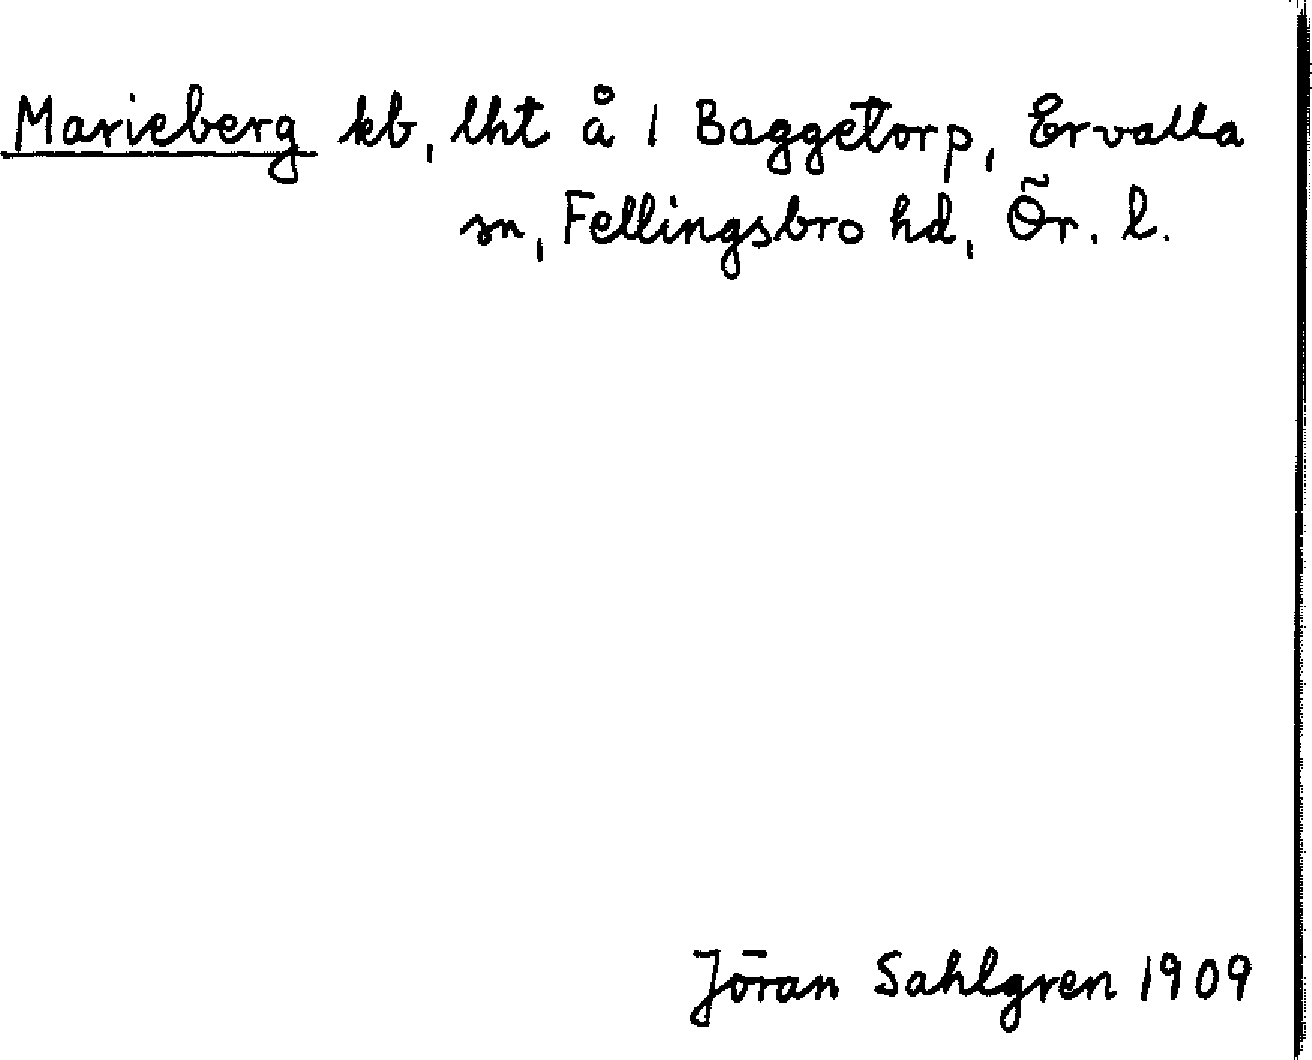 Marieberg kb, lht å 1 Baggetorp, Ervalla
sn, Fellingsbro hd, Ör. l.
Jöran Sahlgren 1909